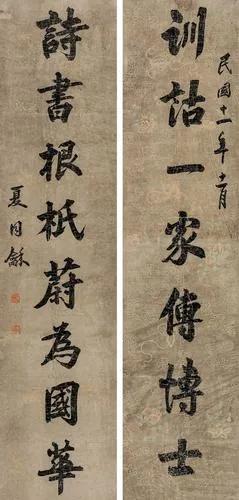 民國十一年
訓詁一家傳博士
詩書根柢蔚為國華
夏同龢